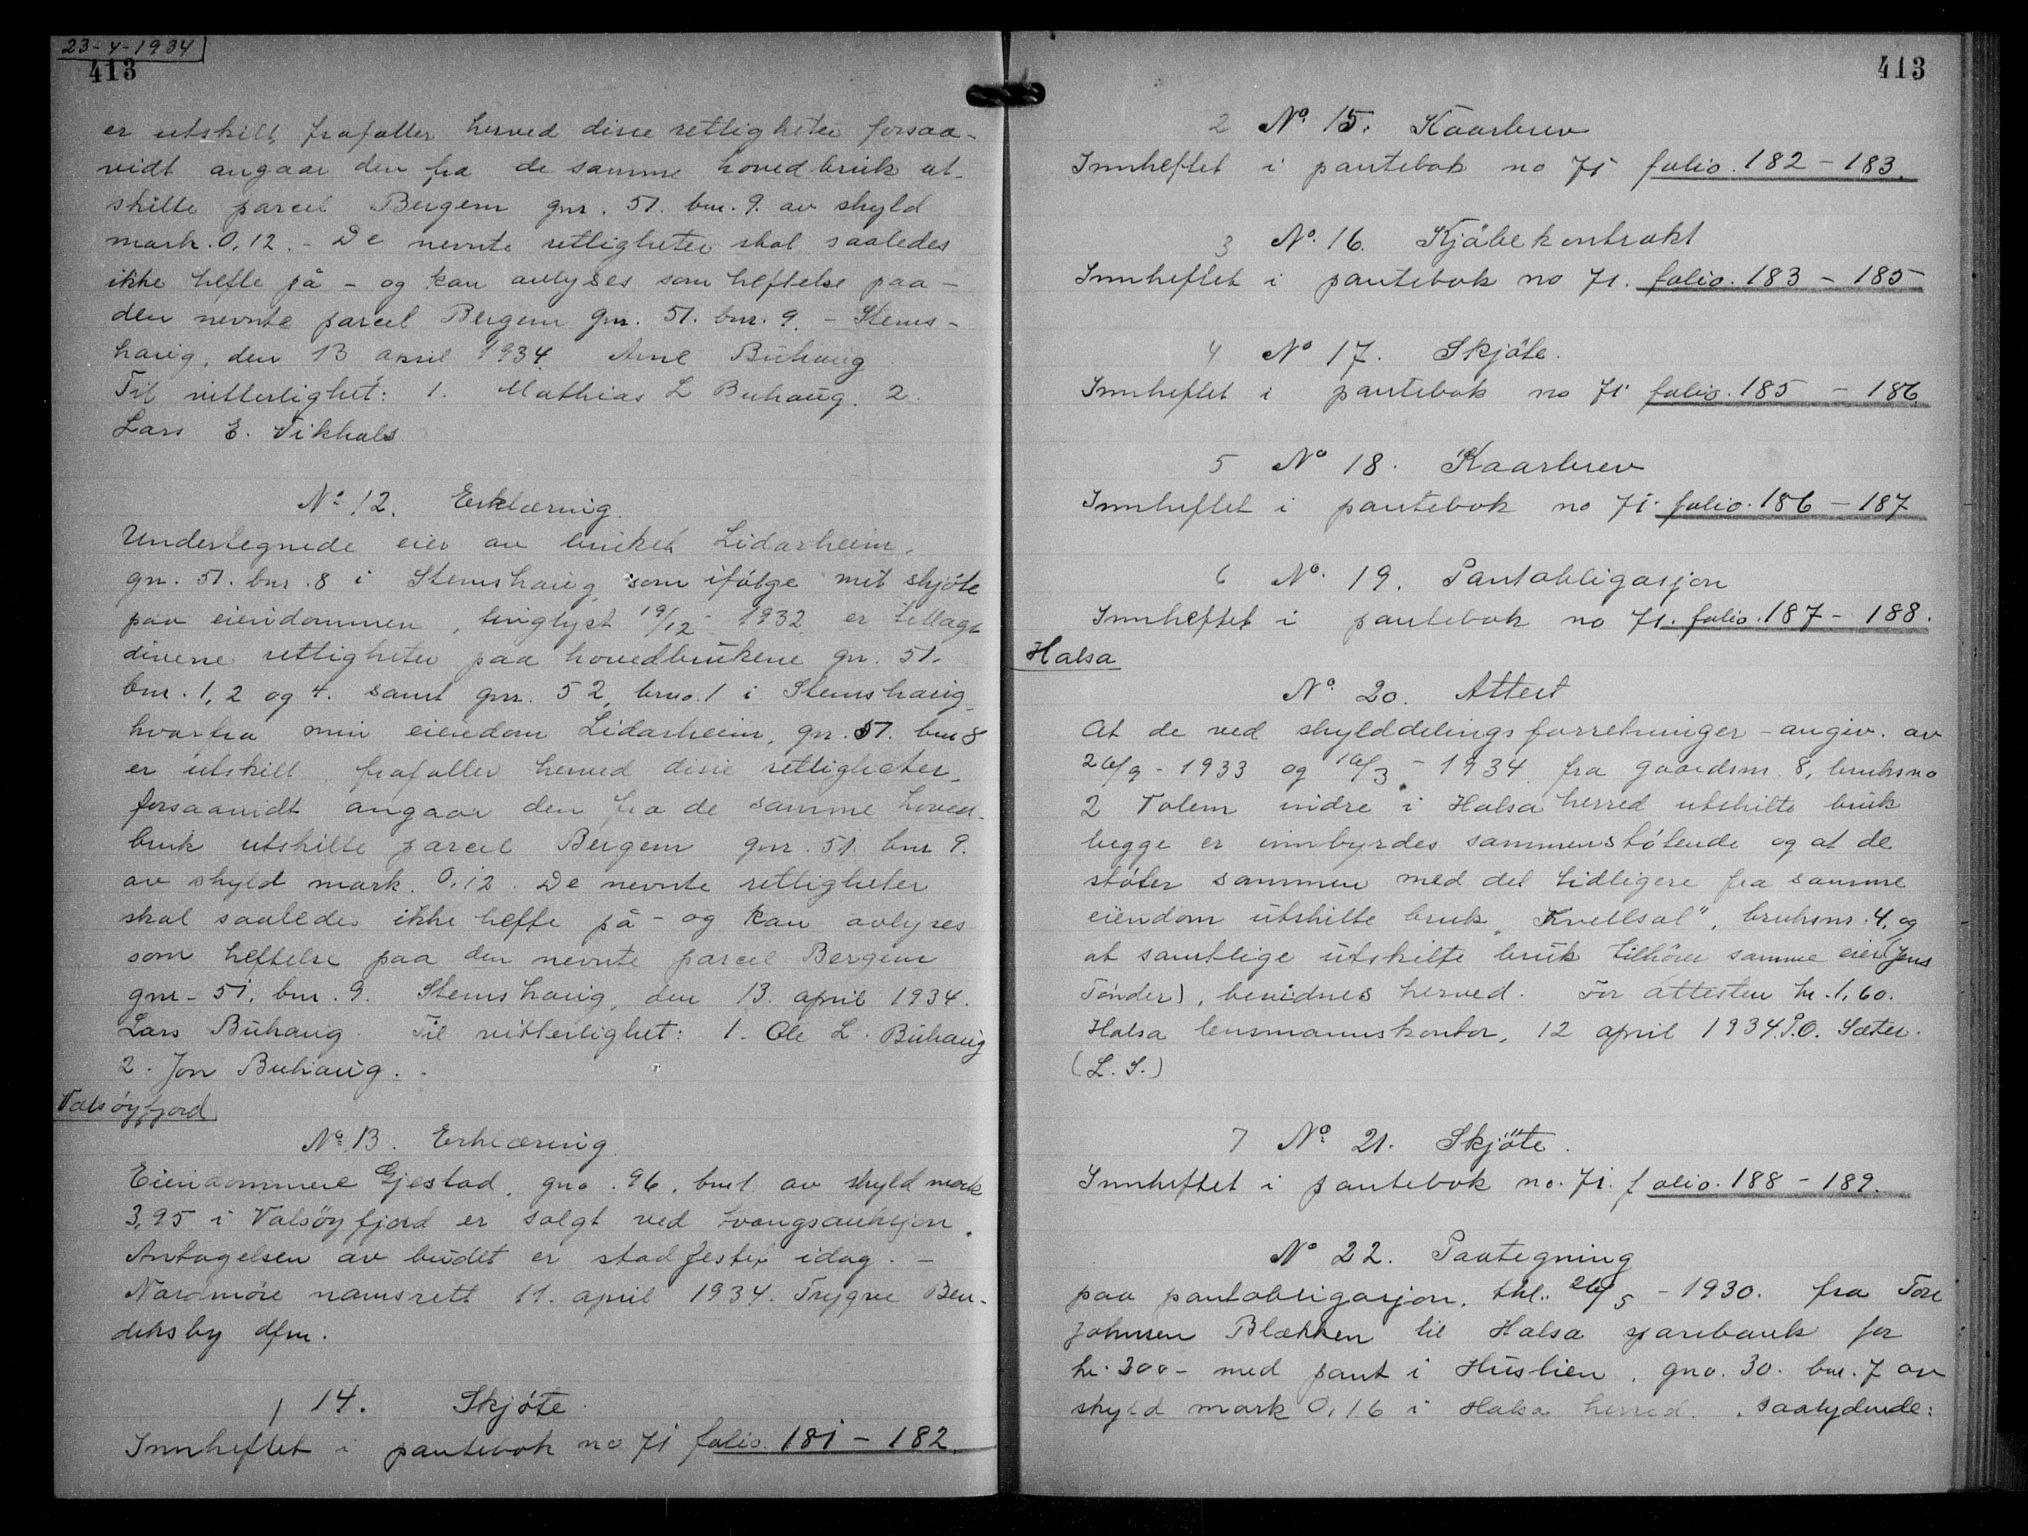 23-4-1934
413
er utskilt, frafaller herved disse rettigheter forsaa-
vidt angaar den fra de samme hovedbruk ut-
skilte parcel Bergem gnr. 51. bnr. 9. av skyld
mark. 0,12. - De nevnte rettigheter skal saaledes
ikke hefte på - og kan avlyses som heftelse paa -
den nevnte parcel Bergem gnr. 51. bnr. 9. - Stems-
haug, den 13 april 1934. Arne Buhaug
Til vitterlighet: 1. Mathias L Buhaug. 2.
Lars E. Vikhals
No 12. Erklæring.
Undertegnede eier av bruket Lidarheim,
gnr. 51. bnr. 8 i Stemshaug, som ifølge mit skjøte
paa eiendommen, tinglyst 19/12 - 1932 er tillagt
diverse rettigheter paa hovedbrukene gnr. 51.
bnr. 1, 2 og 4. samt gnr. 52, brno. 1 i Stemshaug
hvorfra min eiendom Lidarheim, gnr. 51. bnr 8
er utskilt, frafaller herved disse rettigheter,
forsaavidt angaar den fra de samme hoved-
bruk utskilte parcel Bergem gnr. 51 bnr 9.
av skyld mark. 0,12. De nevnte rettigheter
skal saaledes ikke hefte på - og kan avlyses
som heftelse paa den nevnte parcel Bergem
gnr. 51. bnr. 9. Stemshaug, den 13. april 1934.
Lars Buhaug. Til vitterlighet: 1. Ole L. Buhaug
2. Jon Buhaug.
Valsøyfjord
No 13. Erklæring
Eiendommene Gjestad, gno. 96, bnr 1 av skyld mark
3,95 i Valsøyfjord er solgt ved tvangsauksjon.
Antagelsen av budet er stadfestet idag. -
Nordmøre namsrett 11. april 1934. Trygve Ben-
diksby dfm.
1 14. Skjøte
Innheftet i pantebok no 71 folio. 181 - 182.
413
2 No 15. Kaarbrev
Innheftet i pantebok no 71 folio. 182 - 183.
3 No 16. Kjøbekontrakt
Innheftet i pantebok no 71. folio. 183 - 185
4 No 17. Skjøte.
Innheftet i pantebok no 71 folio. 185 - 186.
5 No 18. Kaarbrev
Innheftet i pantebok no 71. folio. 186 - 187
6 No. 19. Pantobligasjon
Innheftet i pantebok no 71. folio. 187 - 188.
Halsa
No 20. Attest
At de ved skylddelingsforretninger - angiv. av
26/9 - 1933 og 16/3 - 1934 fra gaardsnr. 8, bruksno
2 Tolem indre i Halsa herred utskilte bruk
begge er innbyrdes sammenstøtende og at de
støter sammen med det tidligere fra samme
eiendom utskilte bruk "Kvellsol", bruksnr. 4, og
at samtlige utskilte bruk tilhører samme eier (Jens
Tønder), bevidnes herved. For attesten kr. 1,60.
Halsa lensmannskontor, 12 april 1934. P.O. Sæter.
(L. S.)
7 No 21. Skjøte.
Innheftet i pantebok no. 71. folio. 188 - 189.
No 22. Paategning
paa pantobligasjon, thl. 26/5 - 1930. fra Tore
Johnsen Blækken til Halsa sparebank for
kr. 300 - med pant i Huslien, gno. 30. bnr. 7 av
skyld mark 0,16 i Halsa herred. saalydende: